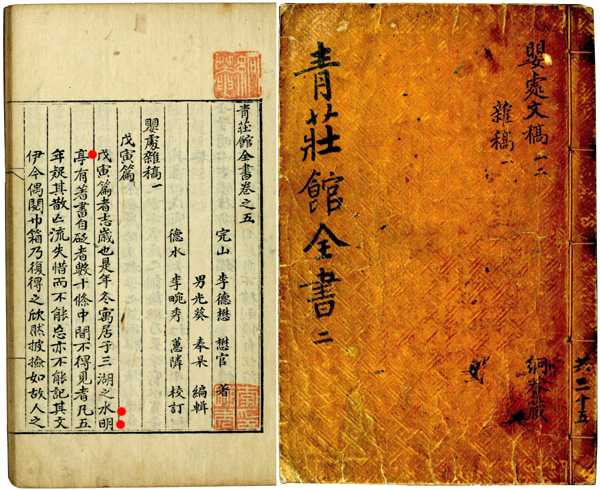 嬰處文稿 一二
雜稿 一
共二十五
藏
青莊館全書 二
青莊館全書卷之五
完山 李德懋 懋官 著
男光葵 奉杲 編輯
德水 李畹秀 蕙隣 校訂
嬰處雜稿一
戊寅篇
戊寅篇者志歲也是年冬寓居于三湖之水明
亭有著書自砭者數十條中間不得見者凡五
年疑其散亡流失惜而不能忘亦不能記其文
伊今偶閱巾箱乃復得之欣然披撿如故人之